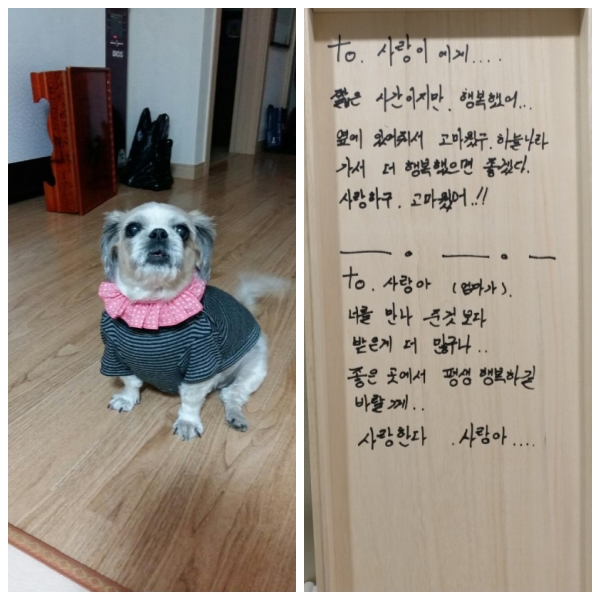 to. 사랑이 에게....
짧은 시간이지만, 행복했어...
옆에 있어줘서 고마웠구. 하늘나라
가서 더 행복했으면 좋겠다.
사랑하구. 고마웠어..!!
to. 사랑아 (엄마가).
너를 만나 준것 보다
받은게 더 많구나..
좋은 곳에서 평생 행복하길
바랄께..
사랑한다 . 사랑아....